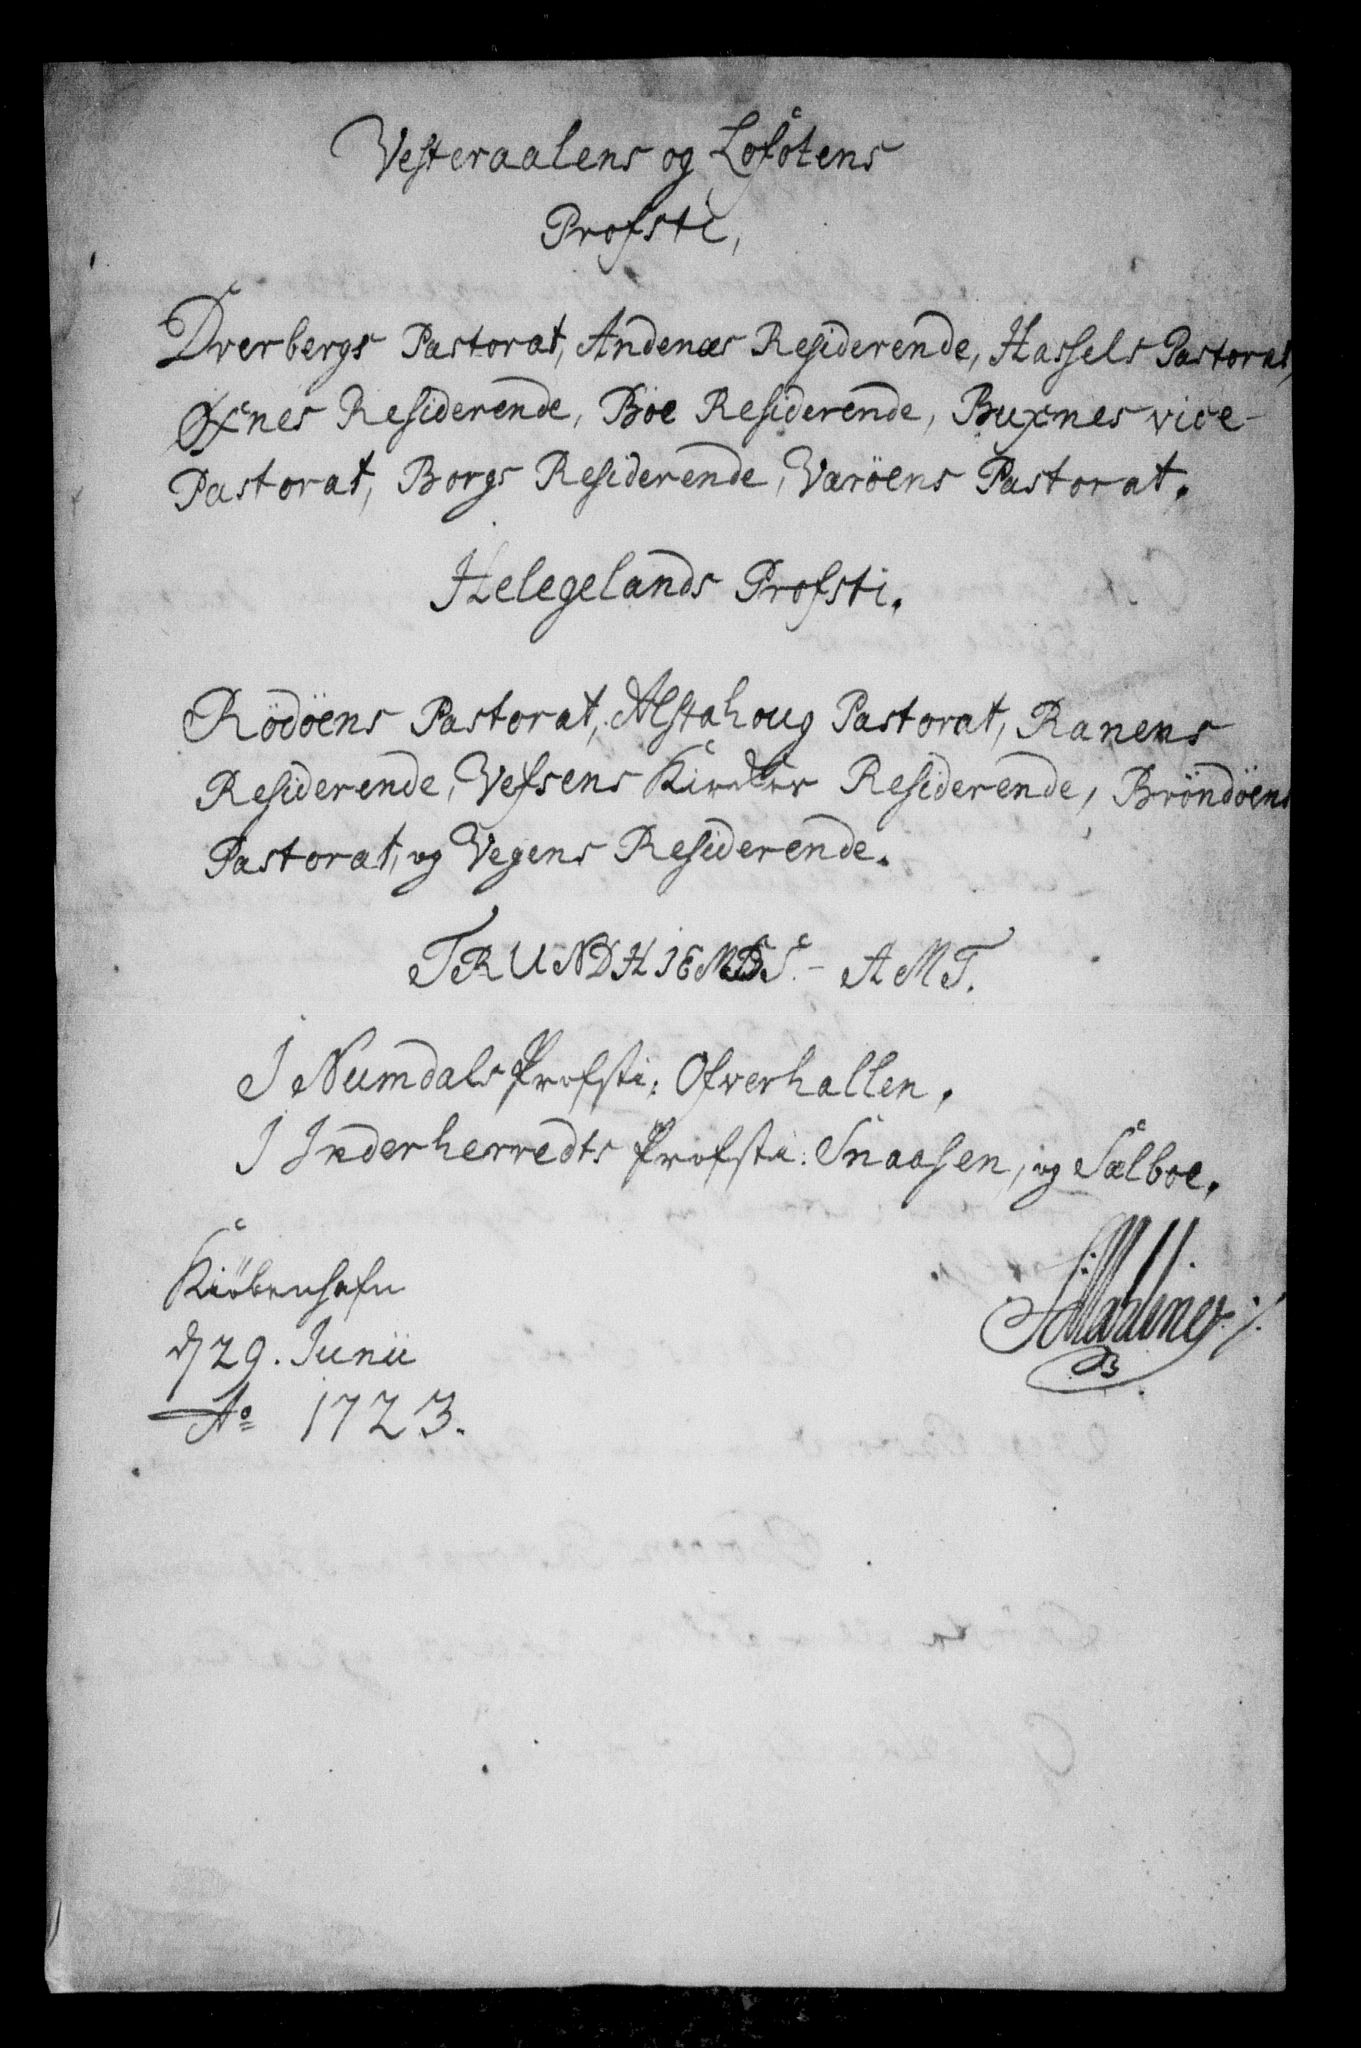 Vesteraalens og Lofotens
Profsti,
Dverbergs Pastorat, Andenæs Residerende, Hassels Pastorat,
Øxnes Residerende, Böe Residerende, Buxnes vice-
Pastorat, Borgs Residerende, Varöens Pastorat.
Helegelands Profsti.
Rödöens Pastorat, Alstahoug Pastorat, Ranens
Residerende, Vefsens Kirker Residerende, Bröndöens
Pastorat, og Vegens Residerende.
TRUNDHIEMS - AMT.
I Numdals Profsti: Ofverhallen.
I Inderherredts Profsti: Snaasen, og Sælboe.
Kiöbenhafn
d 29. Junii
Ao 1723.